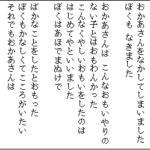 おかあさんをなかしてしまいました
ぼくも なきました
おかあさんは こんなおもいやりの
ない子とはおもわんかった
こんなくやしいおもいをしたのは
はじめてやといいました
ぼくはあほでまぬけで
ばかなことをしたとおもった
ぼくもかなしくてこころがいたい
それでもおかあさんは